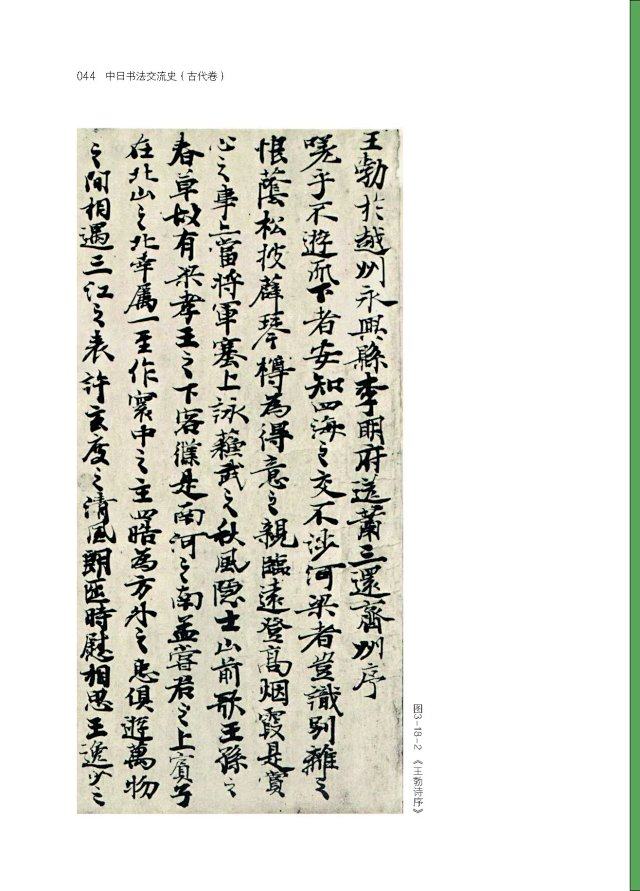 044 中日书法交流史（古代卷）
王勃於越州永興縣李明府送蕭三還齊州序
嗟乎不遊𠀑下者安知四海之交不涉河梁者豈識別離之
恨蔭松披薜琴樽為得意之親臨遠登高烟霞是賞
心之事上當將軍塞上詠蘓武之秋風隱士山前歌王孫之
春草故有梁孝王之下客僕是南河之南孟嘗君之上賓子
在北山之北幸屬一至作寰中之主四皓為方外之𢘑俱遊萬物
之間相遇三江之表許玄度之清風朗匝時慰相思王逸少之
图3-18-2 《王勃诗序》